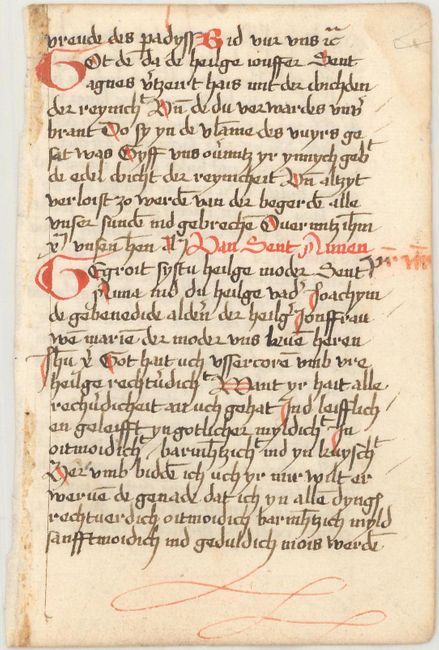 vreude des padyſſ Bid vur vns ic
Got de da de heilge iouffer Sent
agnes v'tzeirt hais mit der doichden
der reynich^t Vn̄ de du verwardes vns'
brant Do ſy yn de vlāme des vuyrs ge
ſat was Gyff vns ouͤmitz yr ynnych geb^t
de edel doicht der reynicheit Vn̄ altzyt
verloiſt zo werdē van der begerdē alle
vnſer ſunde ind gebrechē Ouermitz ihm
xp̄ vnſen hen Van Sent Annen
GEgroit ſyſtu heilge moder Sent
Anna ind du heilge vad' Joachym
de gebenedide aldeͬn der heilg' Jonffrau
wen marien der moder vns lieuē heren
Jhu xp̄ Got hait uch vſſercoren vmb vre
heilge rechtu'dich^t Want yr hait alle
rechu'dicheit an uch gehat Ind leifflich
en geleifft yn gotlicher myldich^t In
oitmoidich^t barmh'tzich^t ind yn kuyſch^t
Her vmb biddē ich uch yr mir wilt er
weruē de genade dat ich yn allē dyngē
rechtuerdich oitmoidich barmh'tzich myld
ſanfftmoidich ind geduldich mois werdē